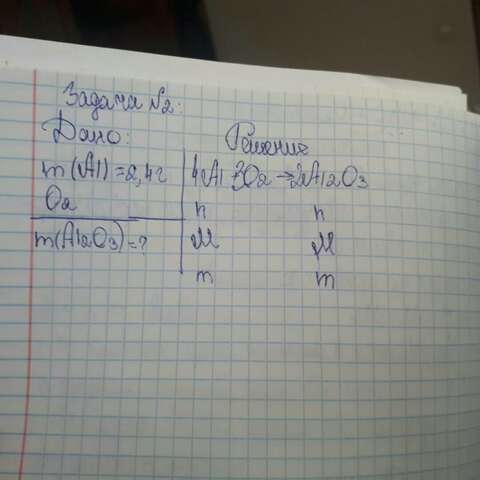 Задача №2:
Дано:
Решение
m(Al)=2,4г
4Al 3O2→2Al2O3
O2
n n
m(Al2O3)=?
M M
m m